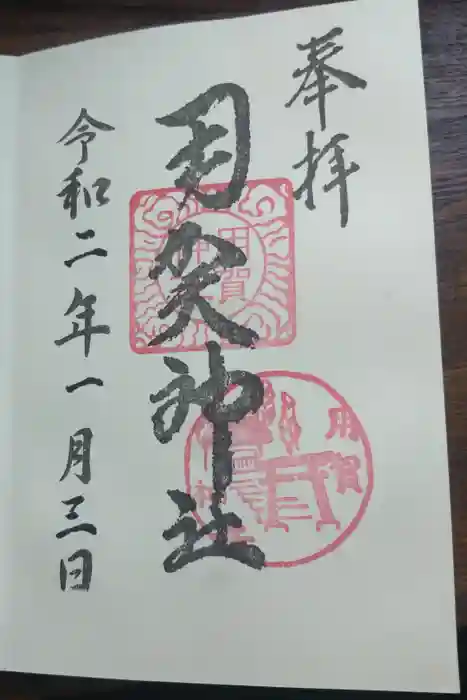 奉拝
用賀神社
令和二年一月三日
用賀
用賀